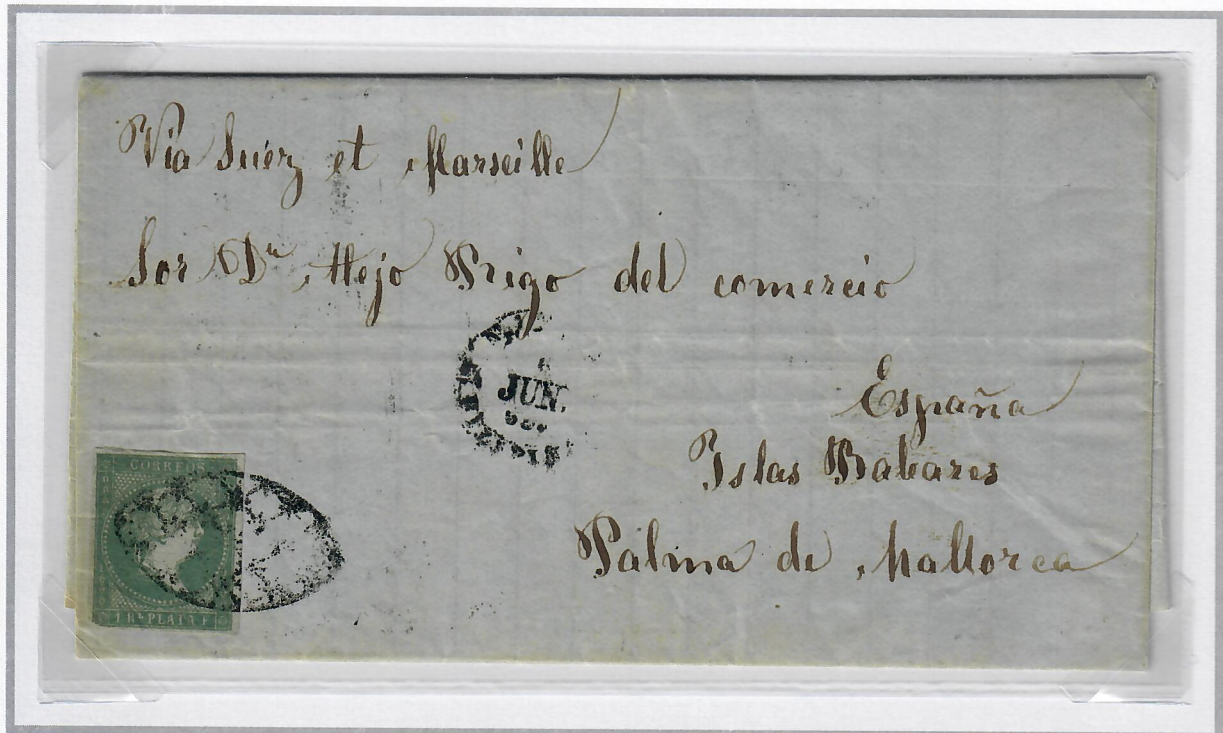 Via Suez et Marseille
Sor Dn Alejo Prigo del comercio
JUN.
España
Islas Baleares
Palma de Mallorca
CORREOS
1 Rl PLATA F